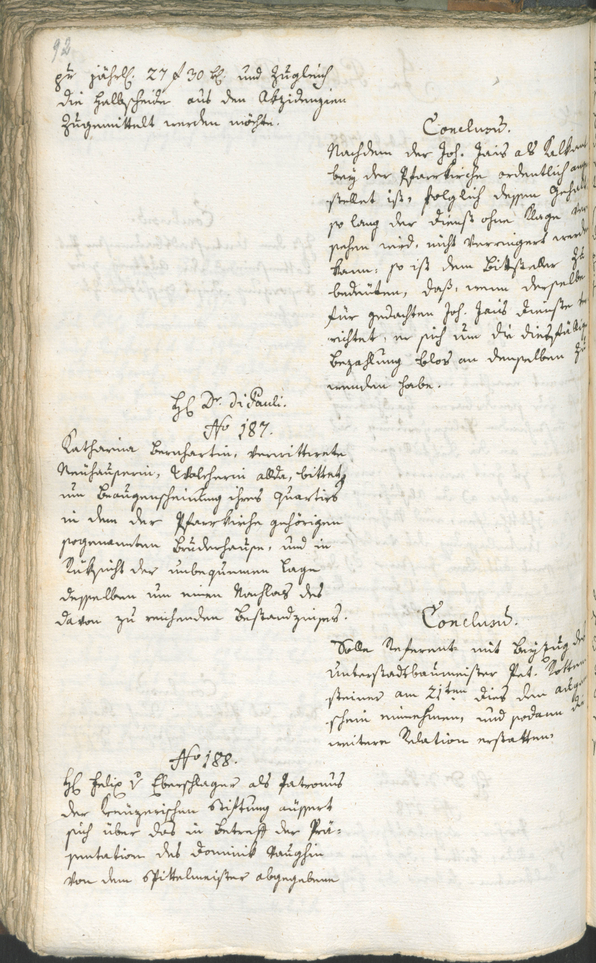 92.
zu jährl. 27 f 30 kr. und zugleich
die Halbscheide aus den Akzidenzien
zugemittelt werden möchte.
Conclusū.
Nachdem der Joh. Jais als Kalkant
bey der Pfarrkirche ordentlich ange
stellet ist, folglich dessen Gehalt
so lang der Dienst ohne Klage ver
sehen wird, nicht verringert werden
kann; so ist dem Bittsteller zu
bedeuten, daß, wenn derselbe
für gedachten Joh. Jais Dienste ver
richtet, er sich um die diesfällige
Bezahlung blos an denselben zu
wenden habe.
H. Dr. di Pauli.
No 187.
Katharina Bernhartin, verwittwete
Neuhauserin, Wälscherin allda, bittet
um Beaugenscheinigung ihres Quartirs
in dem der Pfarrkirche gehörigen
sogenannten Bruderhause, und in
Rücksicht der unbequemen Lage
desselben um einen Nachlas des
davon zu reichenden Bestandzinses.
Conclusū.
Solle Referent mit Beyzug des
Unterstadtbaumeister Pet. Rotten
steiner am 21ten dies den Augen
schein einnehmen, und sodann die
weitere Relation erstatten.
No 188.
H. Felix v. Eberschlager als Patronus
der Kreuzerischen Stiftung äussert
sich über das in Betreff der Prä-
sentation des Dominik
von dem Spittelmeister abgegebene